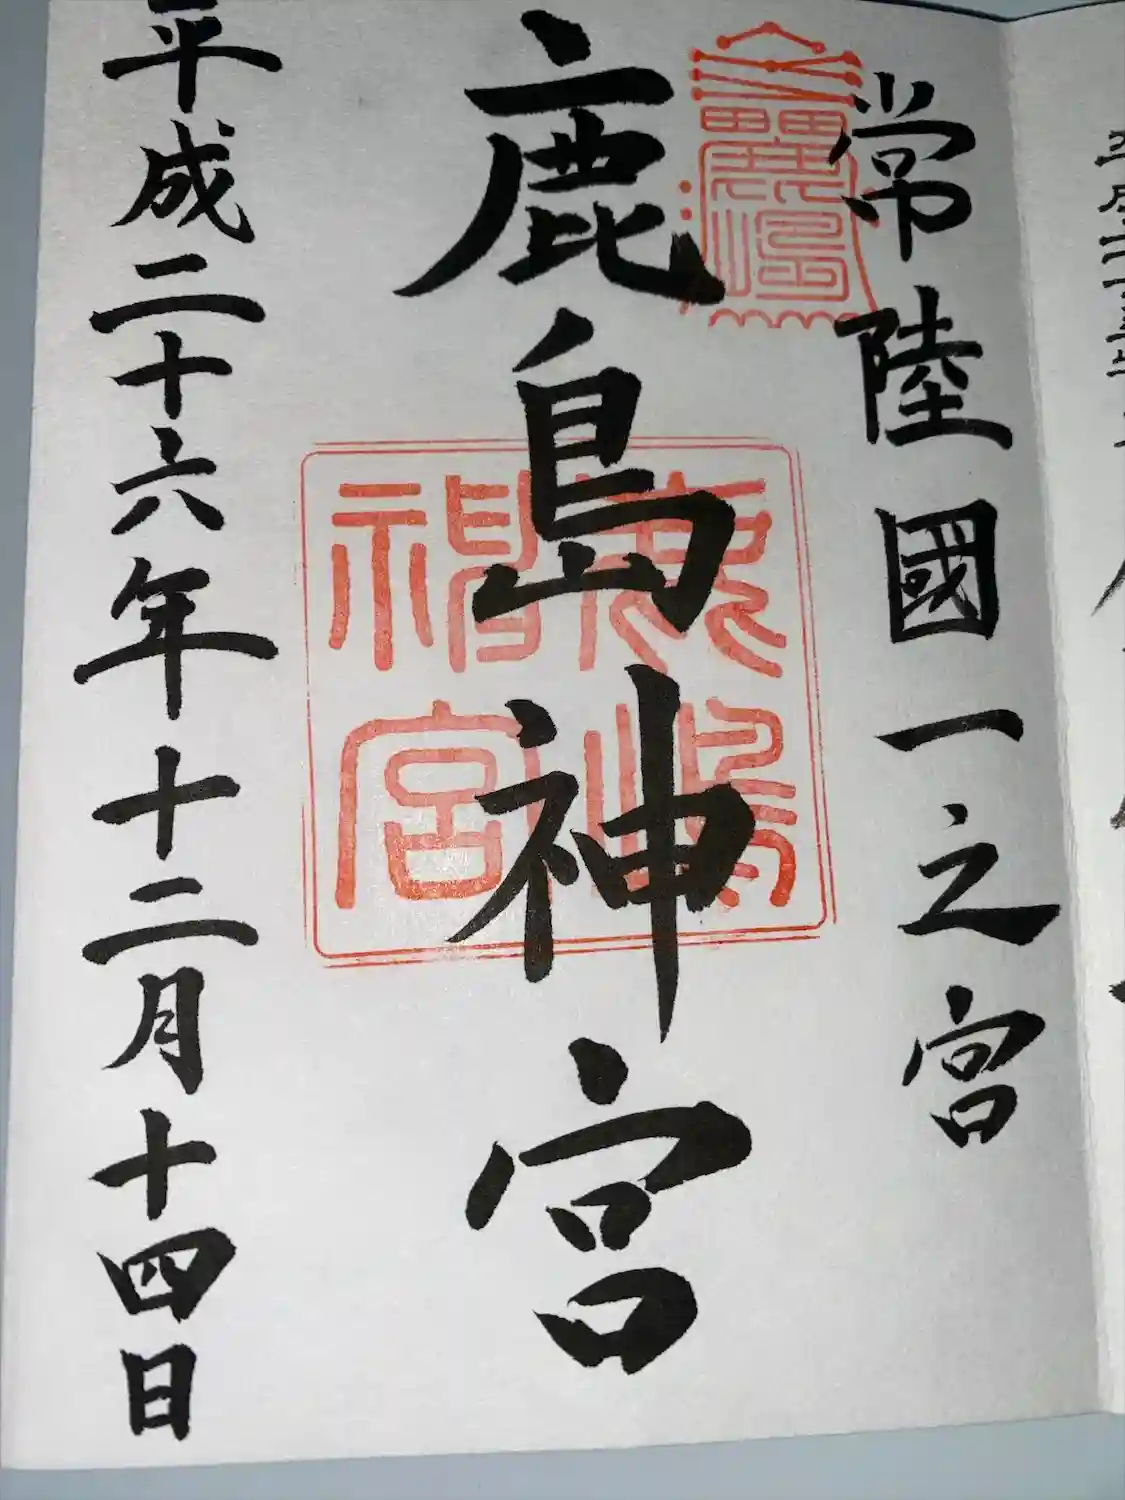 常陸國一之宮
鹿島神宮
鹿嶋神宮
平成二十六年十二月十四日